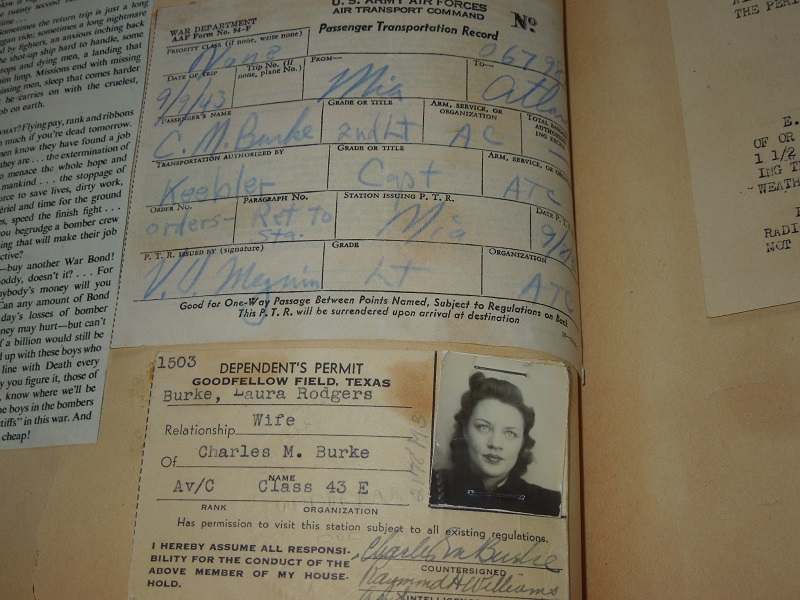 the return trip is just a long
sometimes a long nightmare
by fighters, an anxious inching back
shot-up ship hard to handle, some
and dying men, a landing that
him limp. Missions end with missing
men, sleep that comes harder
he carries on with the cruelest,
job on earth.
WHAT? Flying pay, rank and ribbons
much if you're dead tomorrow.
men know they have found a job
they are . . . the extermination of
to menace the whole hope and
mankind . . . the stoppage of
source to save lives, dirty work,
and time for the ground
speed the finish fight . . .
you begrudge a bomber crew
thing that will make their job
—buy another War Bond!
doesn't it? . . . For
anybody's money will you
Can any amount of Bond
day's losses of bomber
money may hurt—but can't
of a billion would still be
up with these boys who
line with Death every
you figure it, those of
know where we'll be
the boys in the bombers
stiffs” in this war. And
cheap!
WAR DEPARTMENT
AAF Form No. 94-F
U. S. ARMY AIR FORCES
AIR TRANSPORT COMMAND
Passenger Transportation Record
No
PRIORITY CLASS (if none, write none)
None
DATE OF TRIP
9/9/43
TRIP No. (If none, plane No.)
FROM—
Mia
TO—
PASSENGER'S NAME
C. M. Burke
GRADE OR TITLE
2nd Lt
ARM, SERVICE, OR ORGANIZATION
AC
TRANSPORTATION AUTHORIZED BY
Keebler
GRADE OR TITLE
Capt
ARM, SERVICE, OR
ATC
ORDER No.
orders-
PARAGRAPH No.
Ret to Sta.
STATION ISSUING P. T. R.
Mia
DATE P. T.
P. T. R. ISSUED BY (signature)
GRADE
Lt
ORGANIZATION
ATC
Good for One-Way Passage Between Points Named, Subject to Regulations on Back
This P. T. R. will be surrendered upon arrival at destination
1503
DEPENDENT'S PERMIT
GOODFELLOW FIELD, TEXAS
Burke, Laura Rodgers
Relationship Wife
Of Charles M. Burke
NAME
Av/C Class 43 E
RANK ORGANIZATION
Has permission to visit this station subject to all existing regulations.
I HEREBY ASSUME ALL RESPONSI-
BILITY FOR THE CONDUCT OF THE
ABOVE MEMBER OF MY HOUSE-
HOLD.
Charles M Burke
COUNTERSIGNED
Raymond H Williams
THE
E.
OF OR
1 1/2
ING
WEATH
RADI
NOT